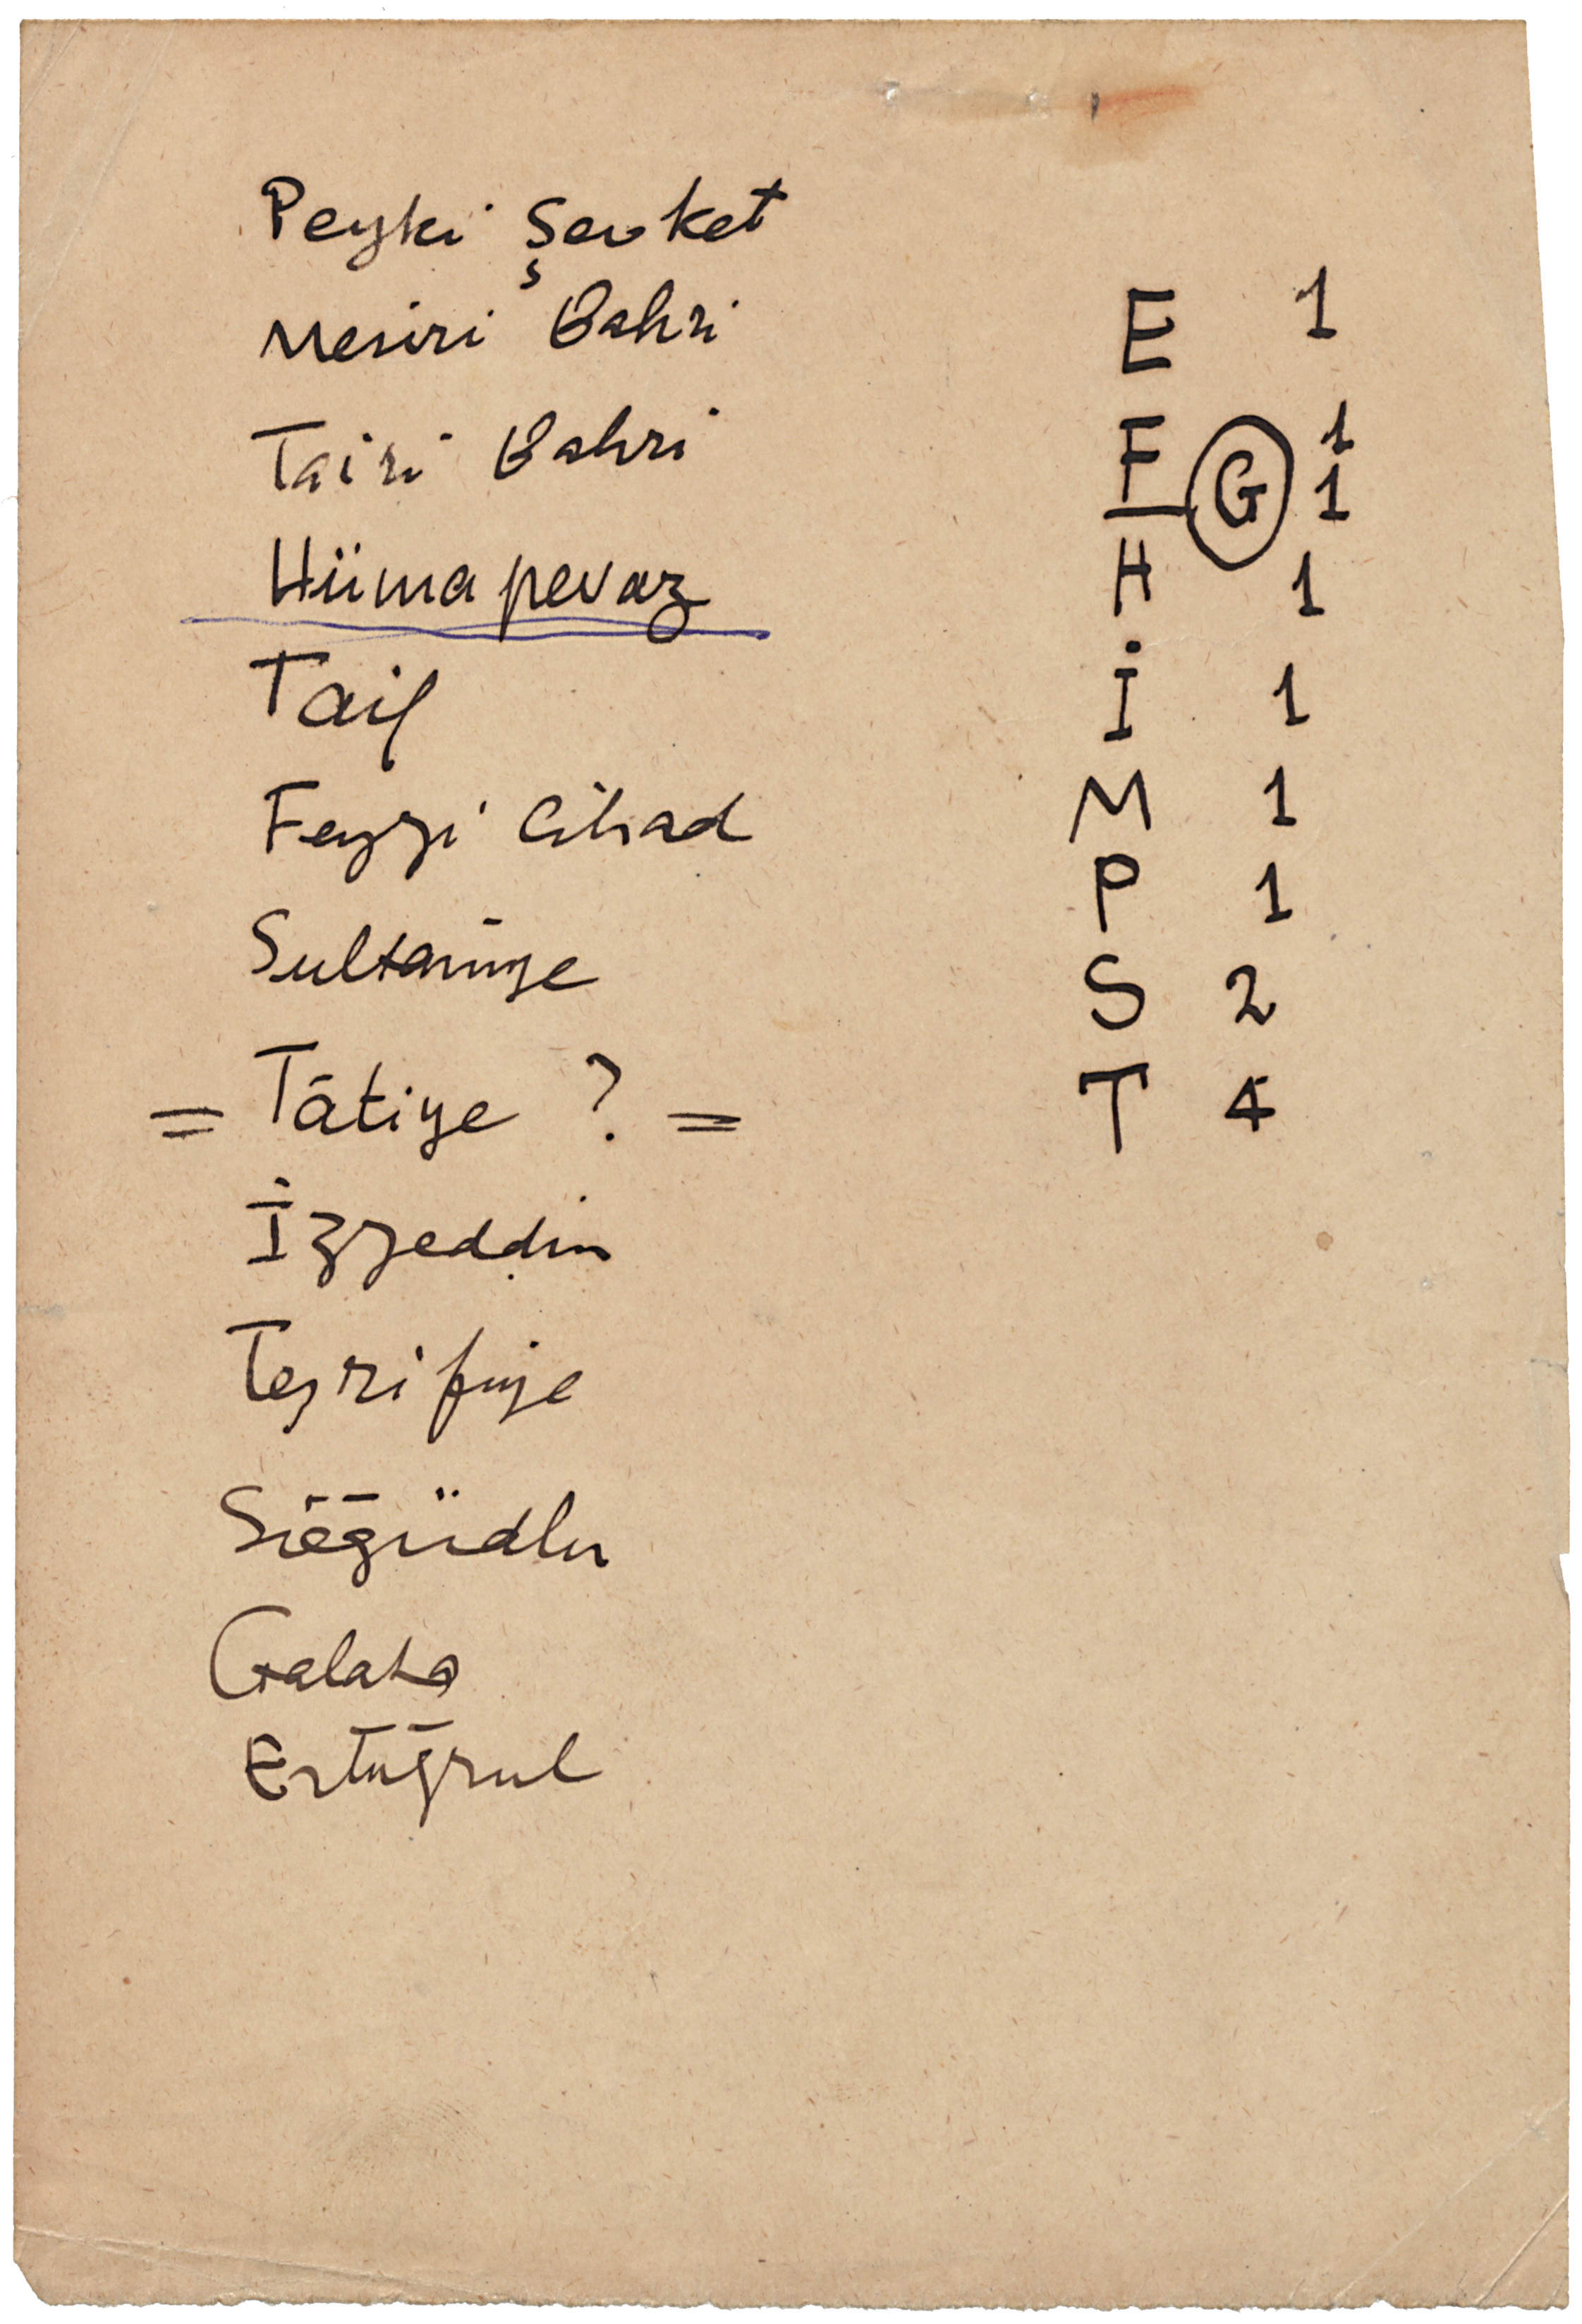 Peyki Şevket
Mesiri Bahri
Tairi Bahri
Hümapevaz
Taif
Feyzi Cihad
Sultaniye
= Tâtiye ? =
İzzeddin
Teşrifiye
Söğüdlü
Galata
Ertuğrul
E 1
F 1
G 1
H 1
İ 1
M 1
P 1
S 2
T 4